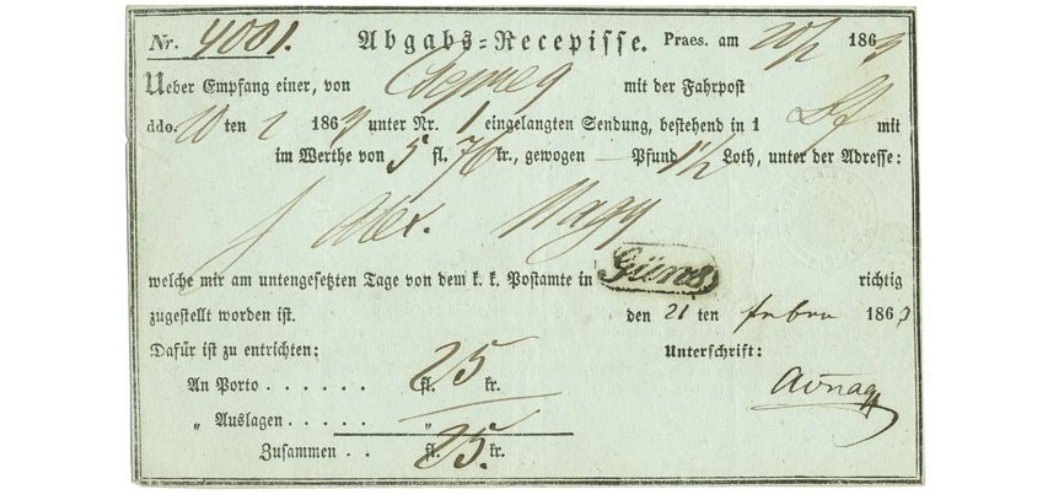 Nr. 4001. Abgabs-Recepisse. Praes. am 20/2 186
Ueber Empfang einer, von Csepreg mit der Fahrpost
ddo. 20 ten 2 186 unter Nr. 1 eingelangten Sendung, bestehend in 1 mit
im Werthe von 5 fl. 76 kr., gewogen — Pfund 1½ Loth, unter der Adresse:
Alex. Nagy
welche mir am untengesetzten Tage von dem k. k. Postamte in Güns richtig
zugestellt worden ist. den 21 ten febru 186
Dafür ist zu entrichten: Unterschrift:
An Porto . . . . . . fl. 25 kr.
„ Auslagen . . . . . „
Zusammen . . fl. 25. kr.